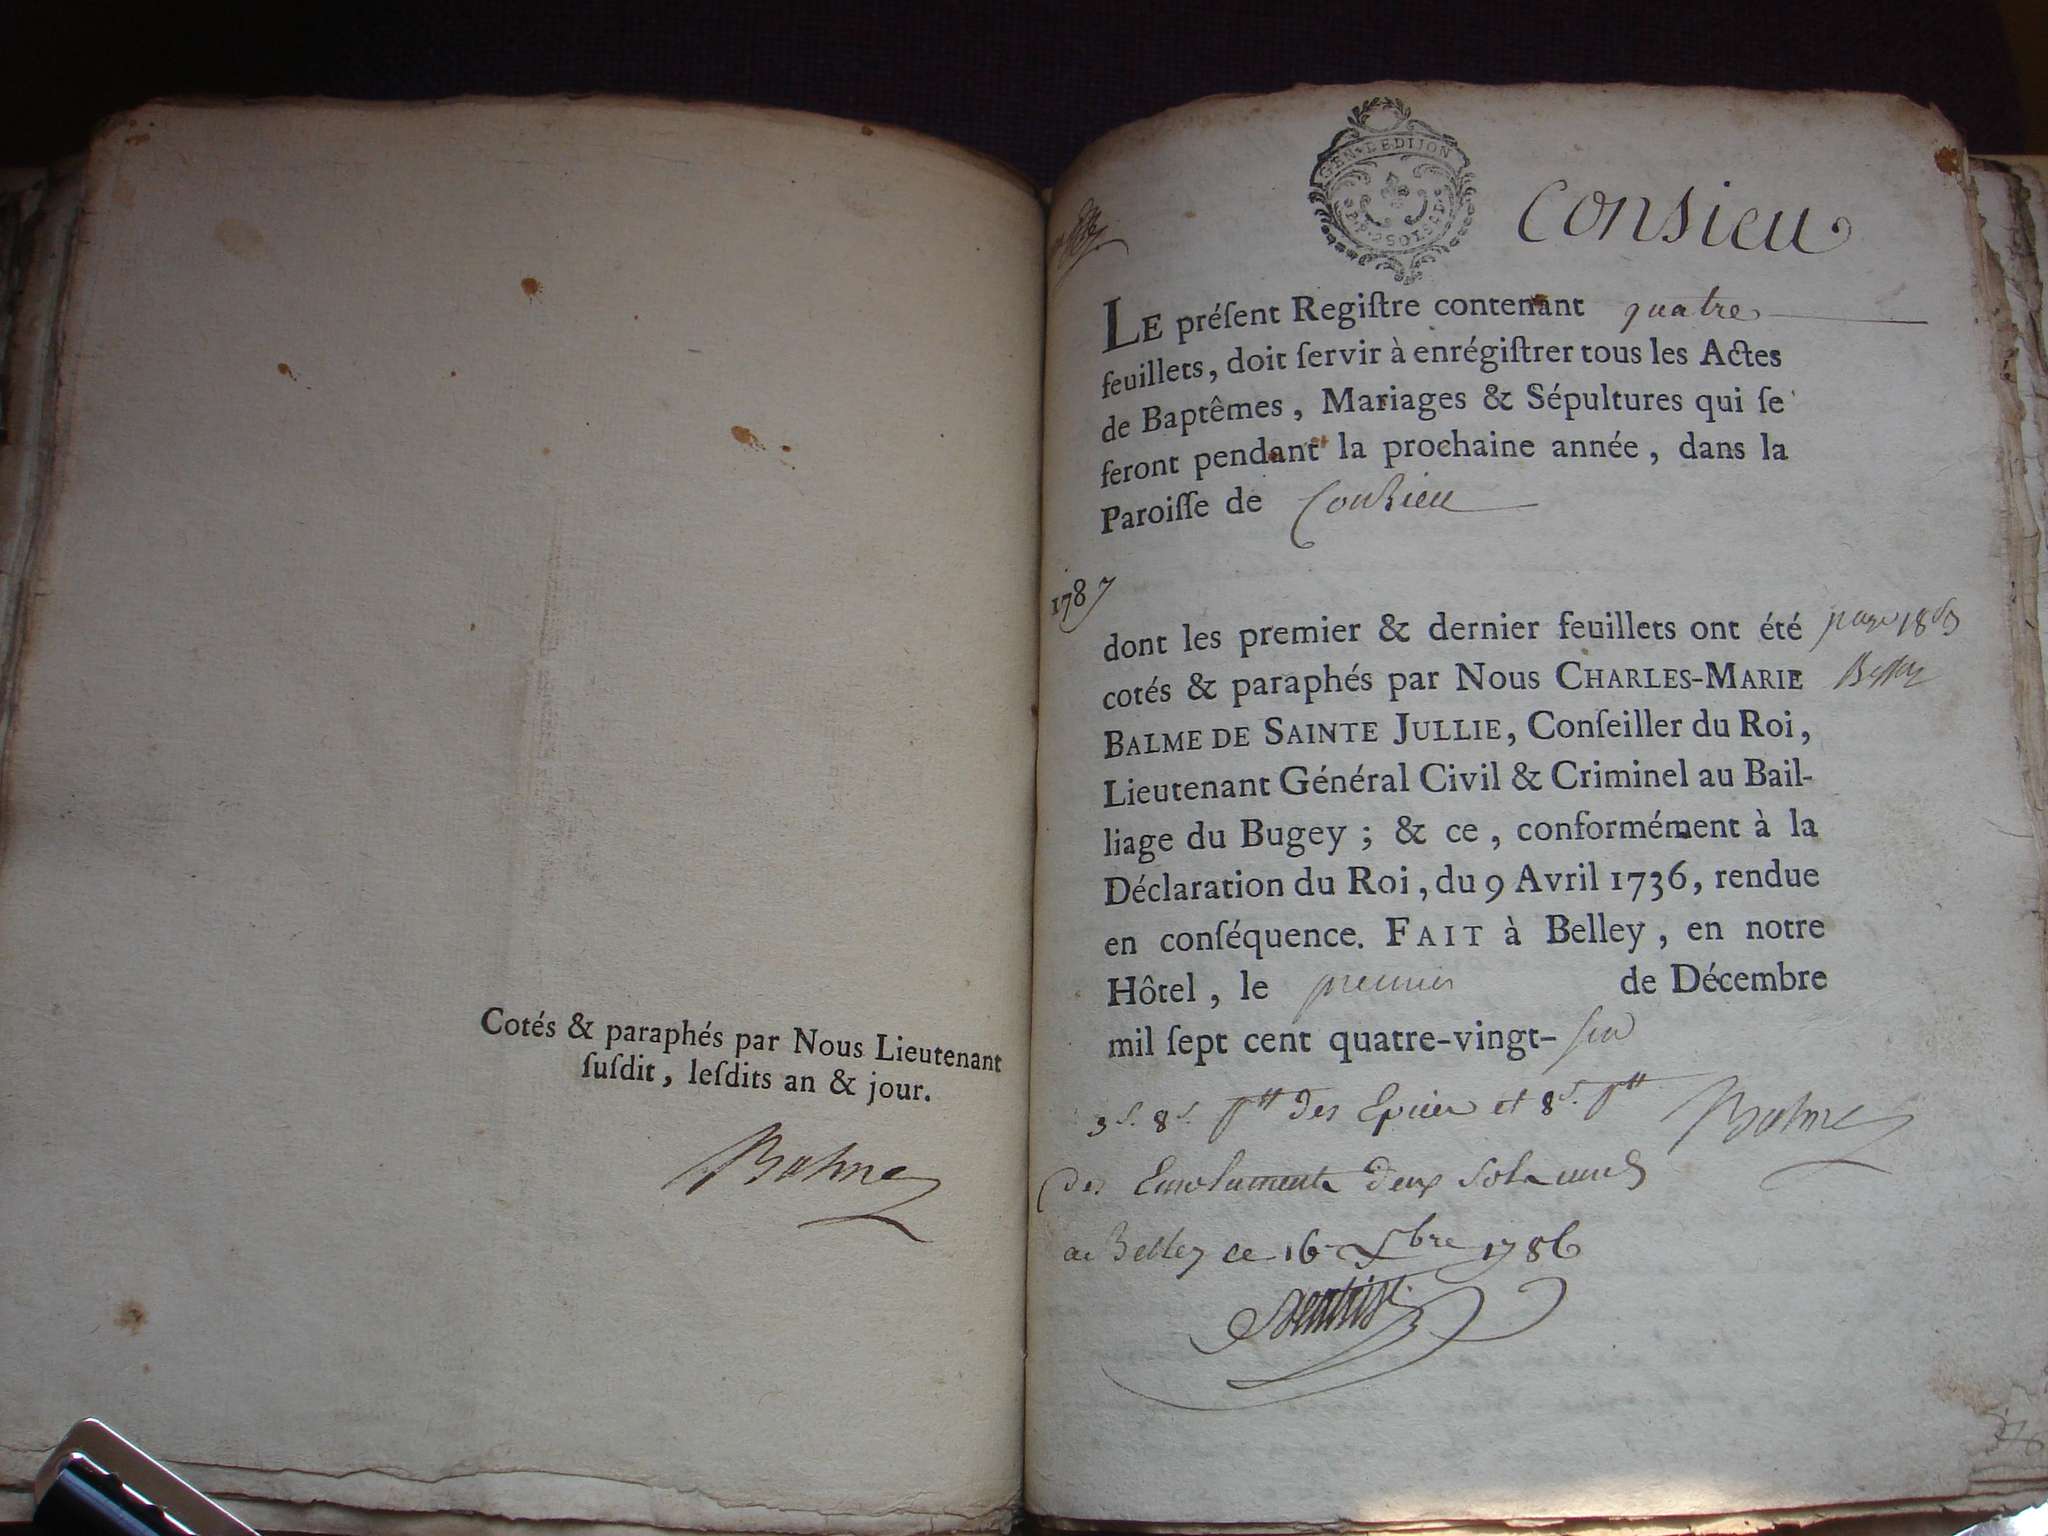 Cotés & paraphés par Nous Lieutenant
ſuſdit, leſdits an & jour.
Balme
GEN. DE DIJON
Consieu
LE préſent Regiſtre contenant quatre
feuillets, doit ſervir à enrégiſtrer tous les Actes
de Baptêmes, Mariages & Sépultures qui ſe
feront pendant la prochaine année, dans la
Paroiſſe de Conzieu
1787
dont les premier & dernier feuillets ont été
cotés & paraphés par Nous CHARLES-MARIE
BALME DE SAINTE JULLIE, Conſeiller du Roi,
Lieutenant Général Civil & Criminel au Bail-
liage du Bugey ; & ce, conformément à la
Déclaration du Roi, du 9 Avril 1736, rendue
en conſéquence. FAIT à Belley, en notre
Hôtel, le premier de Décembre
mil ſept cent quatre-vingt- six
page
3s. 8d. des Epices et 8s.
Balme
des Emoluments deux sols
a Belley ce 16 Xbre 1786